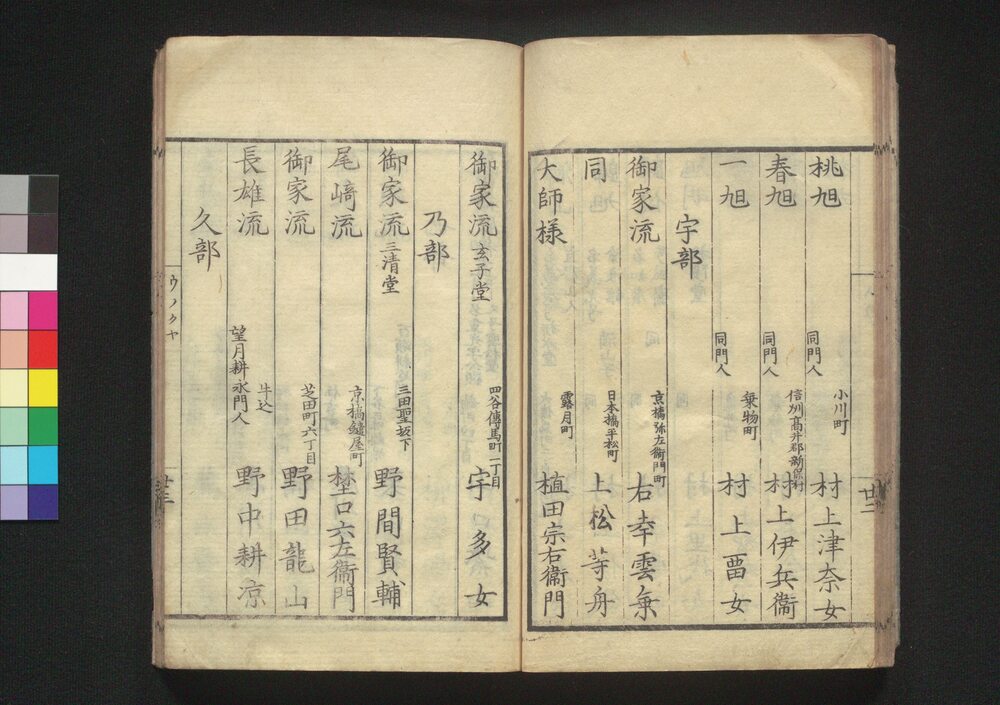 桃旭 同門人 小川町 村上津奈女
春旭 同門人 信州高井郡新保村 村上伊兵衞
一旭 同門人 乗物町 村上畱女
宇部
御家流 京橋弥左衛門町 右幸雲
同 日本橋平松町 上松等舟
大師様 露月町 植田宗右衞門
廿二
御家流 玄子堂 四谷傳馬町一丁目 宇口多女
乃部
御家流 三清堂 三田聖坂下 野間賢輔
尾﨑流 京橋鎗屋町 埜口六左衞門
御家流 芝田町六丁目 野田龍山
長雄流 望月耕永門人 牛込 野中耕凉
久部
ウノクヤ
廿三